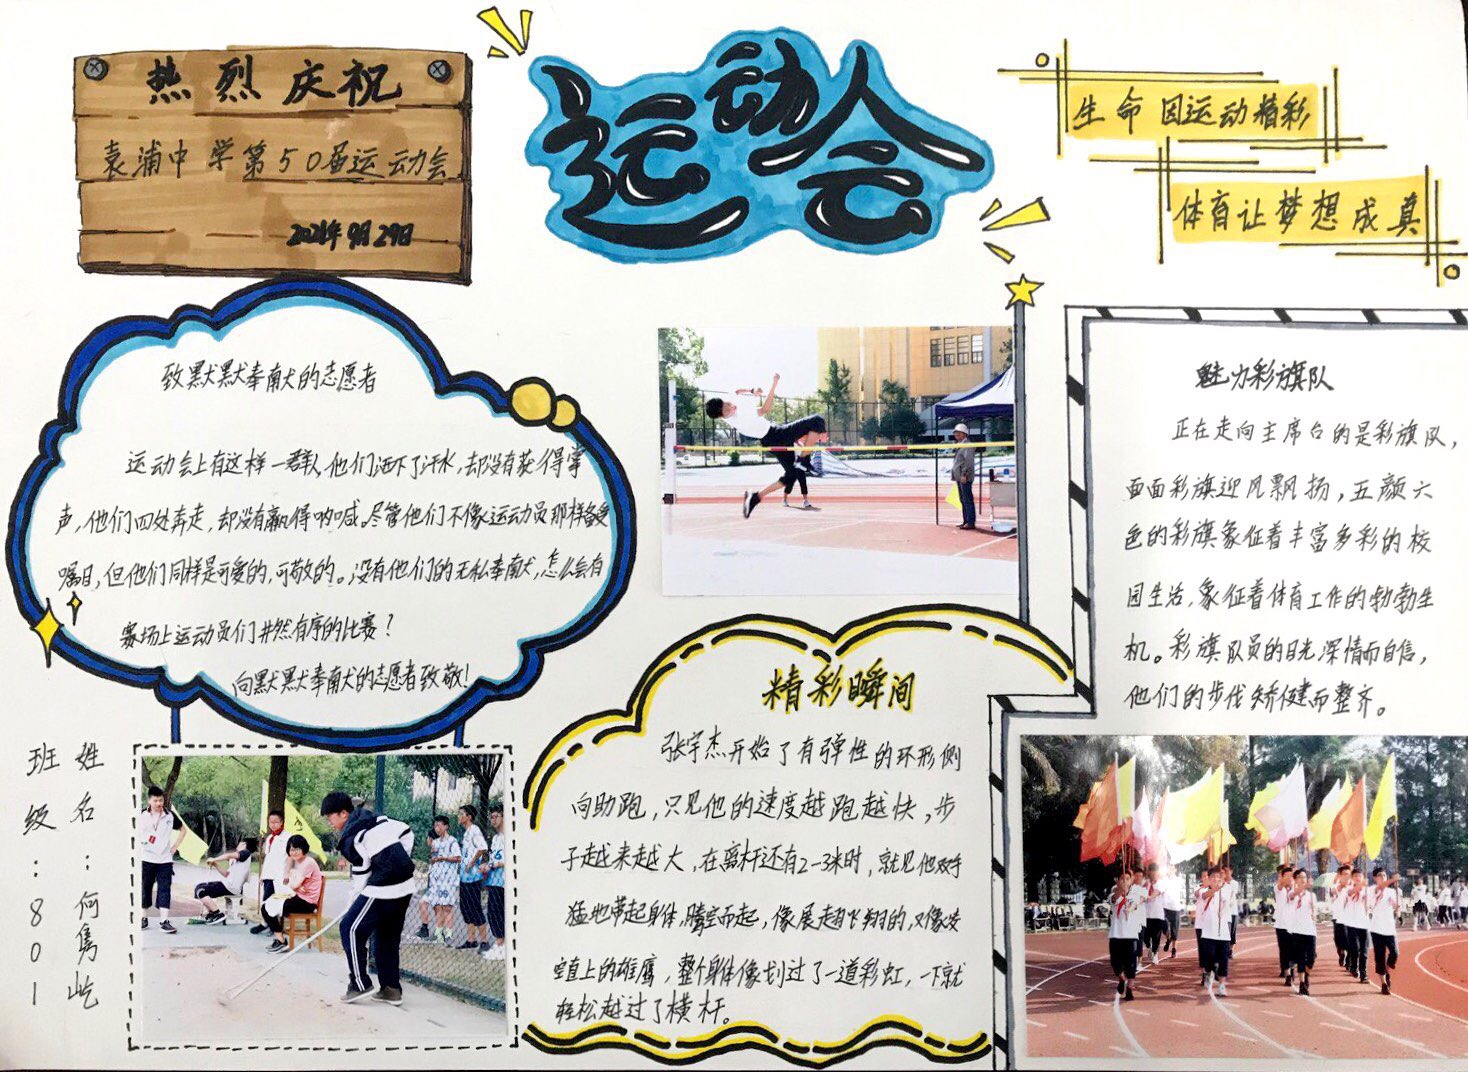 热烈庆祝
袁浦中学第50届运动会
2021年9月29日
运动会
生命因运动精彩
体育让梦想成真
致默默奉献的志愿者
运动会上有这样一群人,他们洒下了汗水,却没有获得掌
声,他们四处奔走,却没有赢得呐喊。尽管他们不像运动员那样备受
瞩目,但他们同样是可爱的,可敬的。没有他们的无私奉献,怎么会有
赛场上运动员们井然有序的比赛?
向默默奉献的志愿者致敬!
魅力彩旗队
正在走向主席台的是彩旗队,
面面彩旗迎风飘扬,五颜六
色的彩旗象征着丰富多彩的校
园生活,象征着体育工作的勃勃生
机。彩旗队员的目光深情而自信,
他们的步伐矫健而整齐。
精彩瞬间
张宇杰开始了有弹性的环形侧
向助跑,只见他的速度越跑越快,步
子越来越大,在离杆还有2-3米时,就见他双手
猛地带起身体,腾空而起,像展翅飞翔的,又像凌
空直上的雄鹰,整个身体像划过了一道彩虹,一下就
轻松越过了横杆。
班级:801
姓名:何隽屹